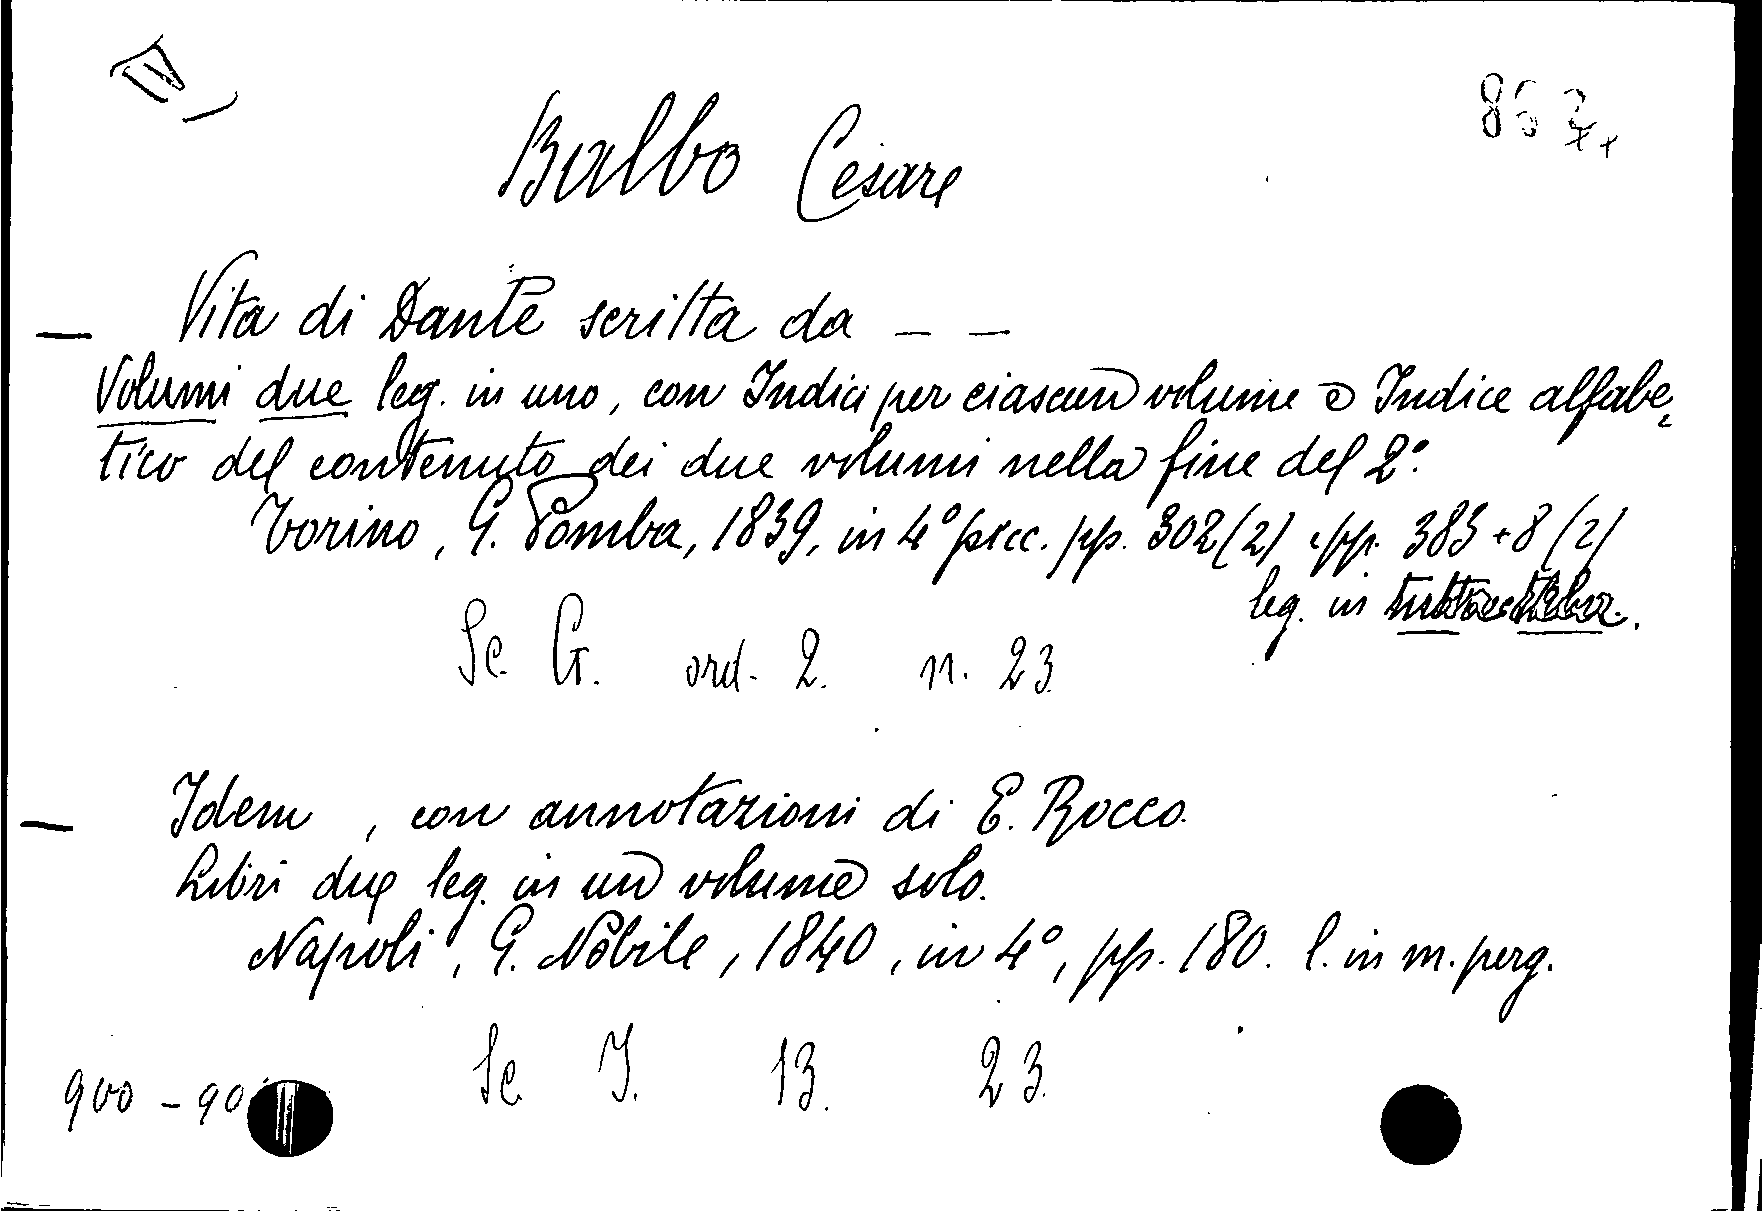 IV
Balbo Cesare
— Vita di Dante scritta da — —
Volumi due leg. in uno, con Indici per ciascun volume e Indice alfabe-
tico del contenuto dei due volumi nella fine del 2º.
Torino, G. Pomba, 1839, in 4º picc. pp. 302(2) e pp. 383+8(2)
leg. in
Sc. G. ord. 2. n. 23
— Idem , con annotazioni di E. Rocco.
Libri due leg. in un volume solo.
Napoli, G. Nobile, 1840, in 4º, pp. 180. l. in m. perg.
Sc I. 13. 23.
900 - 90